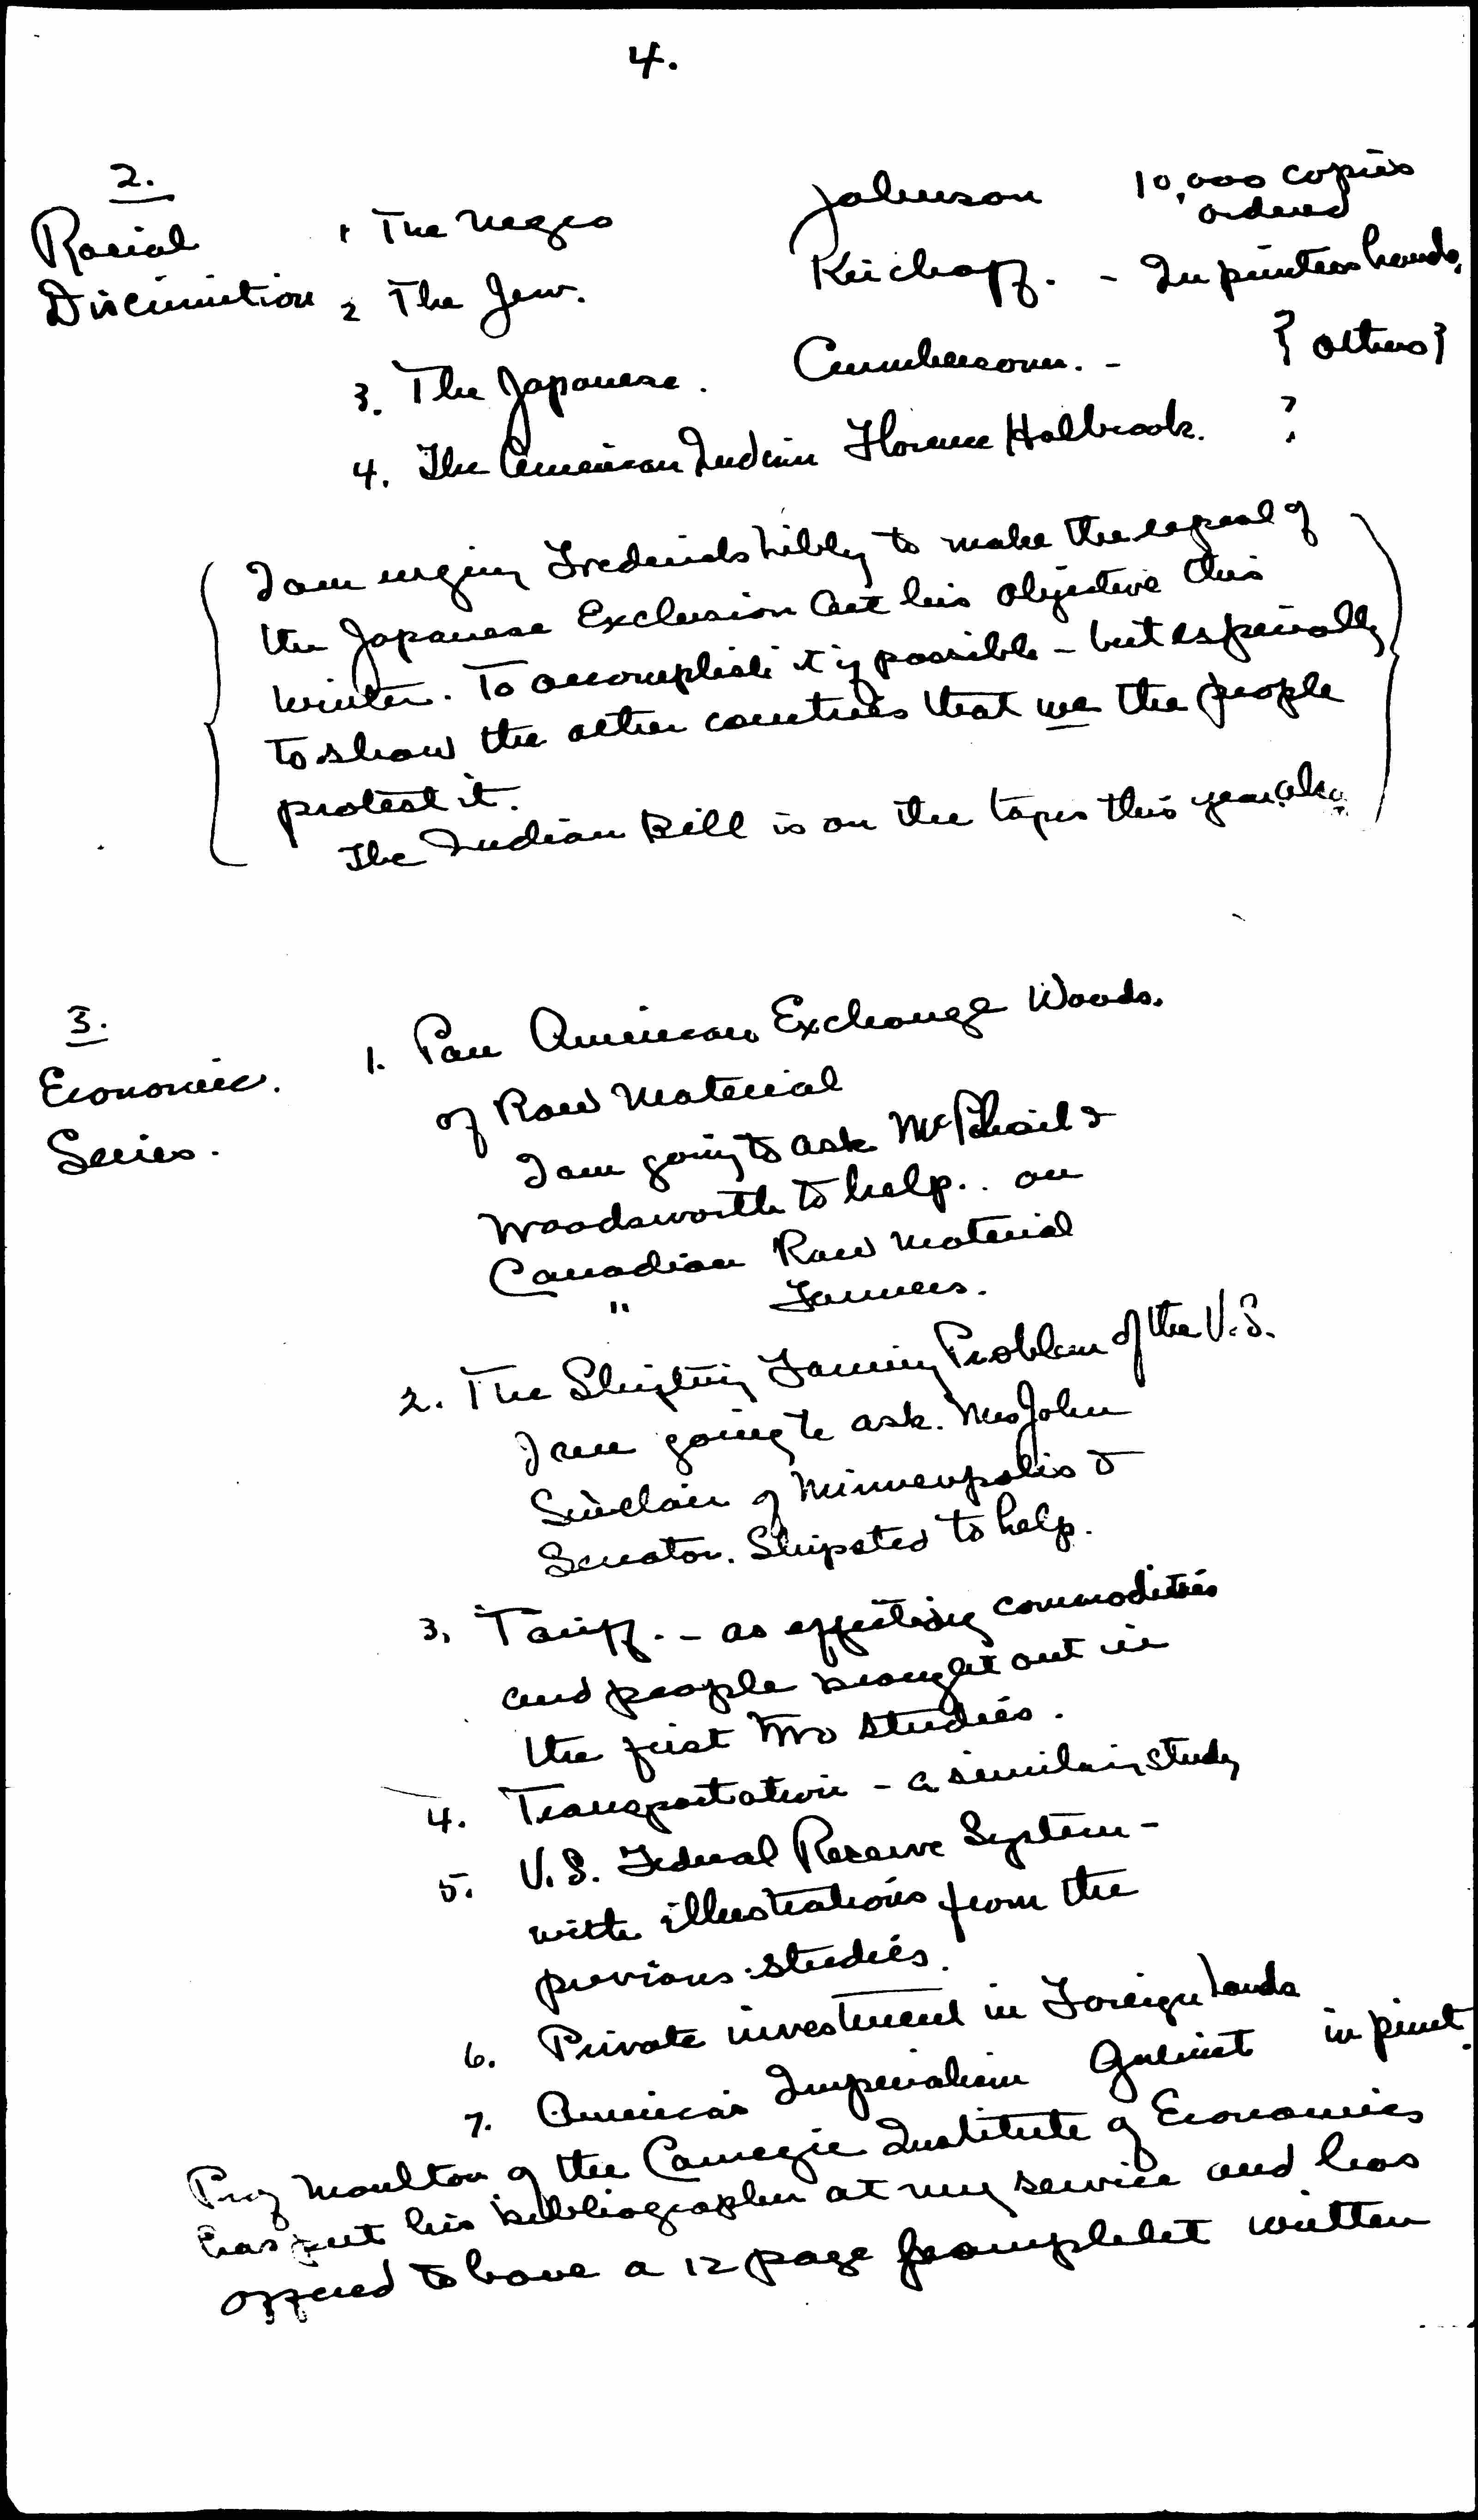 4.
2.
Racial 1 The Negro Johnson 10,000 copies
ordered
Discrimition 2 The Jew. Kirchoff. - In printers hands.
3. The Japanese. - { others }
4. The American Indian Florence Holbrook. ?
I am urging Frederick Libby to make the repeal of
the Japanese Exclusion Act his objective this
winter. To accomplish it if possible - but especially
to show the other countries that we the people
protest it.
The Indian Bill is on the tapis this year also
3.
Economic. 1. Pan American Exchange Woods.
Series. of Raw Material
I am going to ask McPhail &
Woodsworth to help.. on
Canadian Raw Material
" Farmers.
2. The Shifting Farming Problem of the U.S.
I am going to ask. Mrs John
Sinclair of Minneapolis &
Senator. Shipsted to help.
3. Tariff. - as effecting commodities
and people brought out in
the first two studies.
4. Transportation - a similar study
5. U.S. Federal Reserve System -
with illustrations from the
previous studies.
6. Private investment in Foreign lands
7. America's Imperialism in print.
Prof Moulton of the Carnegie Institute of Economics
has put his bibliographer at my service and has
offered to have a 12 page pamphlet written